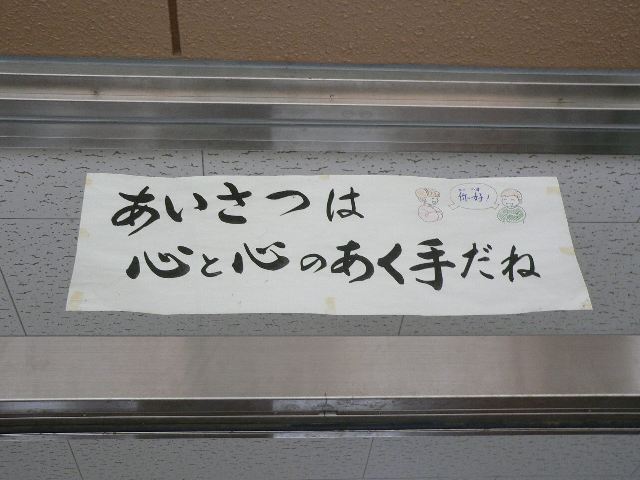 あいさつは
心と心のあく手だね
你好!